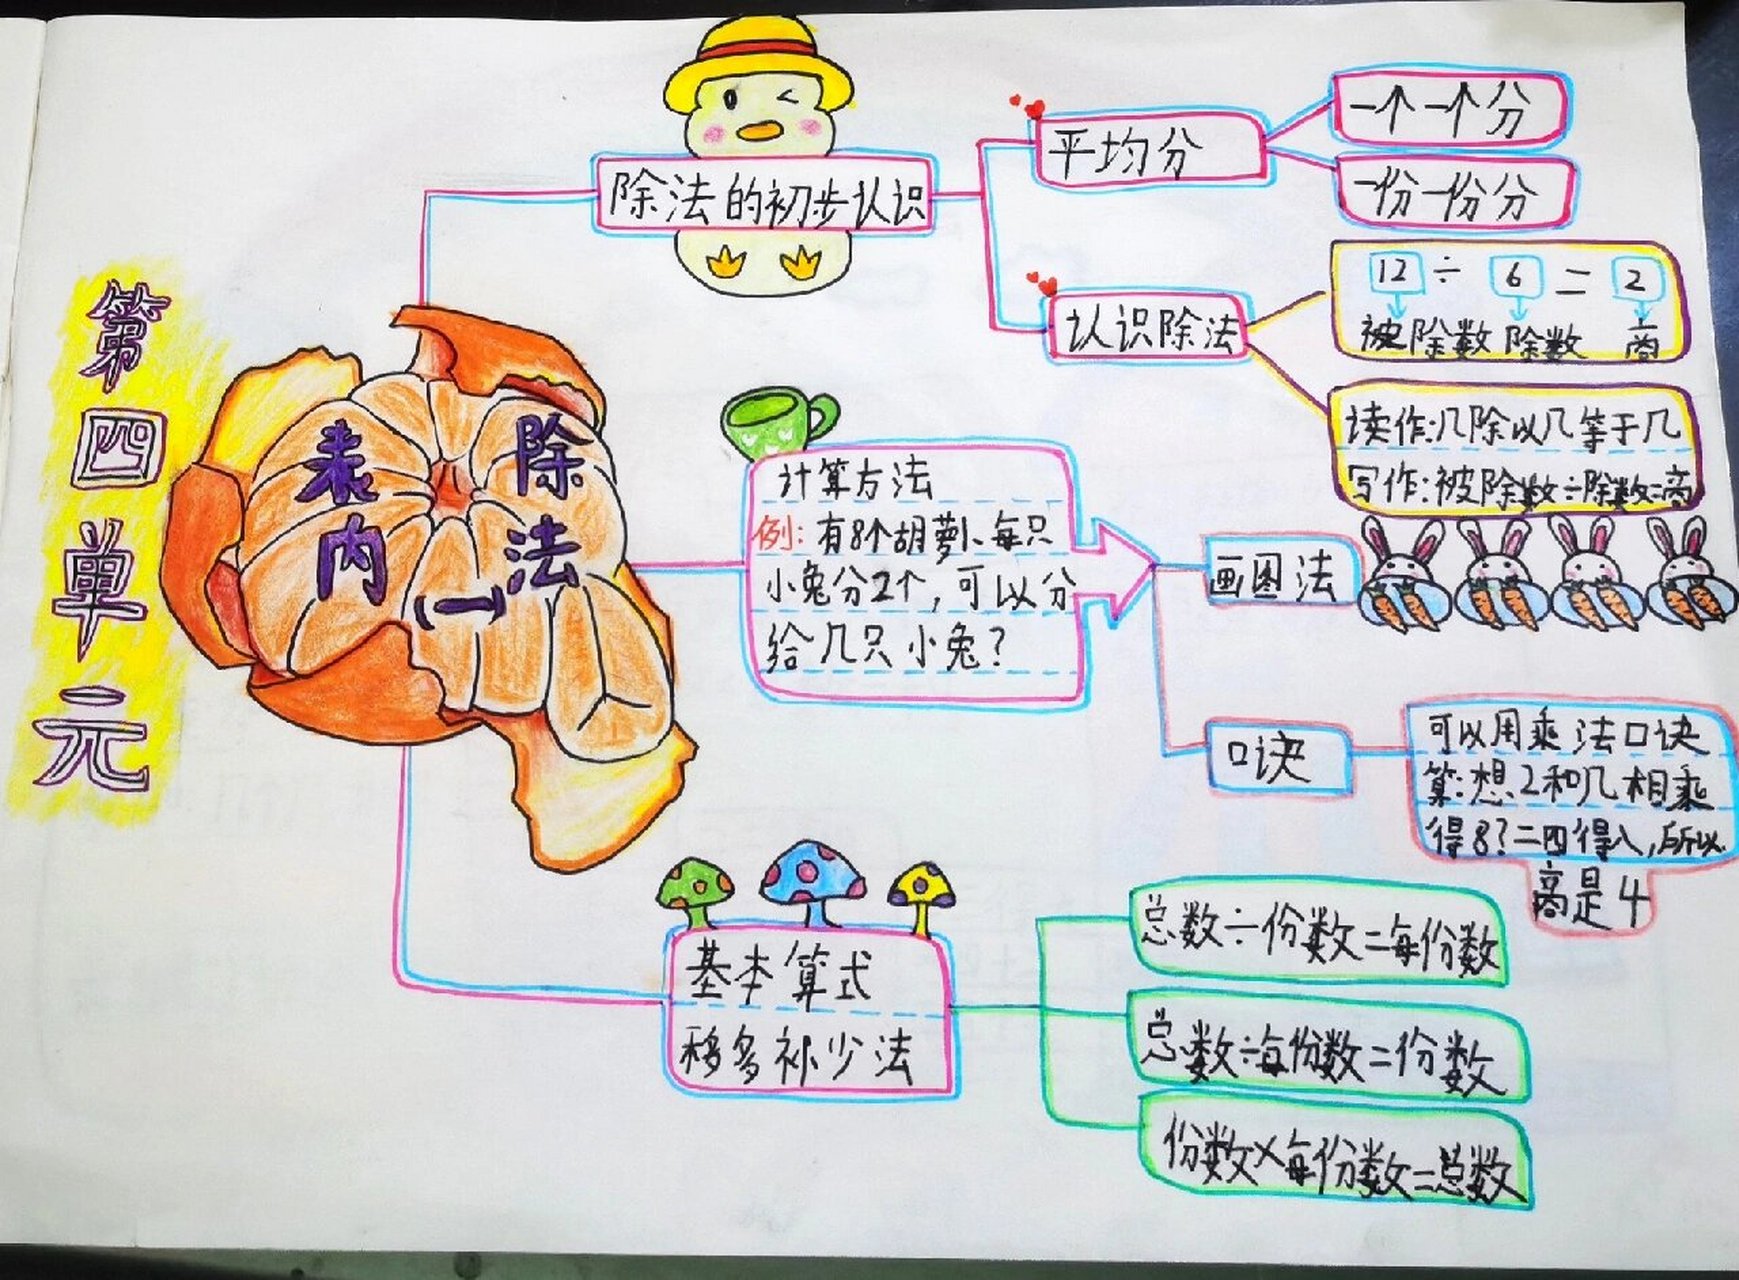 第四单元
表内
除法
(一)
除法的初步认识
平均分
一个一个分
一份一份分
认识除法
12 ÷ 6 = 2
被除数 除数 商
读作:几除以几等于几
写作:被除数÷除数=商
计算方法
例:有8个胡萝卜、每只
小兔分2个,可以分
给几只小兔?
画图法
口诀
可以用乘法口诀
算:想2和几相乘
得8?二四得八,所以
商是4
基本算式
移多补少法
总数÷份数=每份数
总数÷每份数=份数
份数×每份数=总数